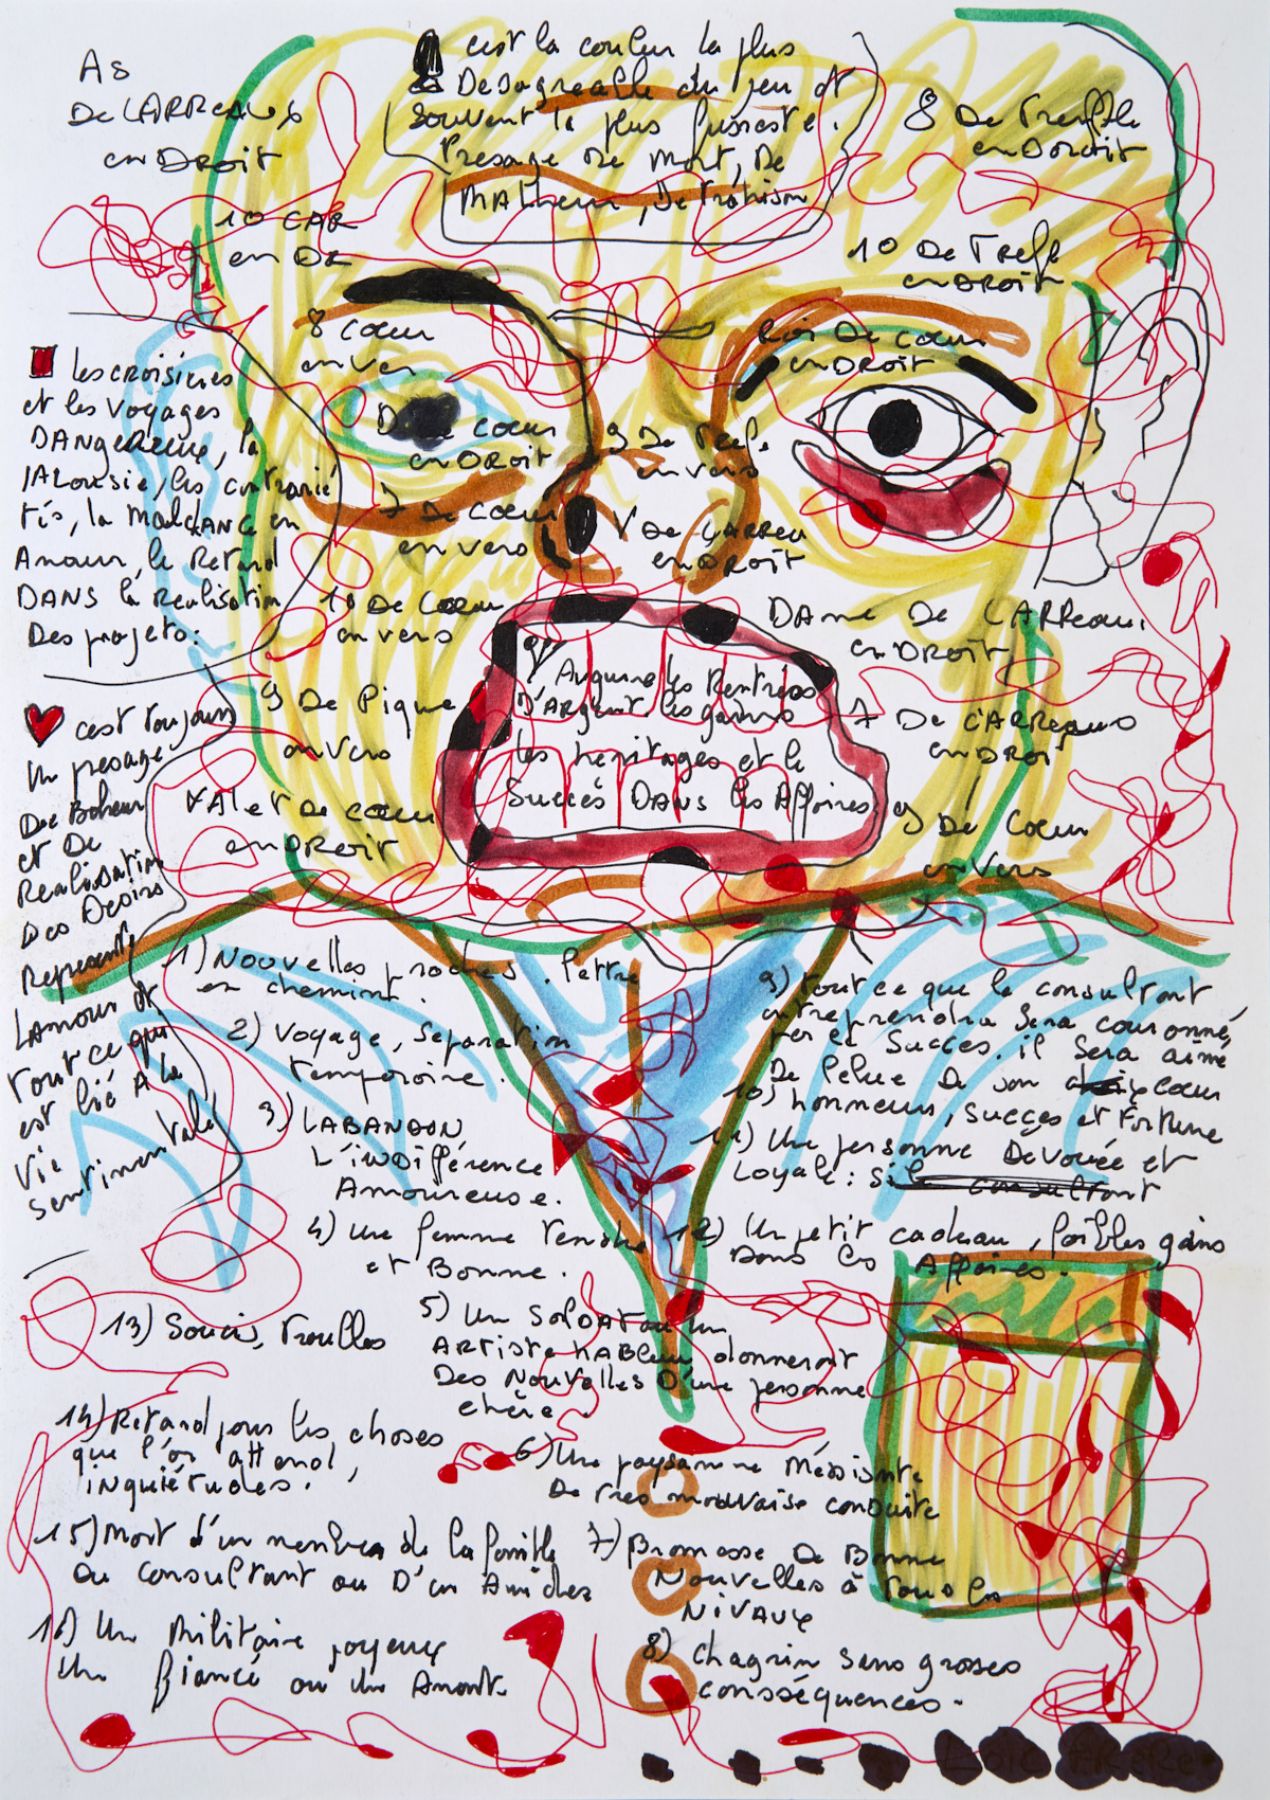 AS
De CARREAUX
en DROIT
c'est la couleur la plus
Desagreable du jeu et
souvent la plus funeste.
Presage de mort, De
MALheur, De trahison
8 De Treffle
en Doroit
10 CAR
en DR
10 De Trefle
en DROIT
8 cœur
en Ver
Roi De cœur
en DROIT
les croisieres
et les voyages
DANgereux, la
JALOUSIE, les contrarié
tés, la malchance en
Amour, le Retard
DANS la realisation
Des projets.
cœur
en DROIT
9 De Trefle
en vers
7 De cœur
en vers
V De CARREAU
en DROIT
10 De Cœur
en vers
DAME De CARReaux
en DROIT
Augure les Rentrées
D'ARgent. les gains
les heritages et le
Succès DANS les Affaires
9 De Pique
en vers
7 De CARReaux
en DROI
c'est toujours
Un presage
De Boheur
et De
Realisation
Des Desirs
Represente
L'Amour et
tout ce qui
est lié A la
Vie
Sentimentale
VAlet De cœur
en DROIT
9 De Cœur
en vers
1) NOUVelles proches. lettre
en chemint.
2) Voyage, separation
temporaire.
3) L'ABANDON,
L'inDifférence
Amoureuse.
4) Une femme Tendre
et Bonne.
5) Un SOLDAT ou un
ARTiste HABleur donneront
Des NOUVelles D'une personne
chère
6) Une paysanne Méssisnte
De Tres mauvaise conduite
7) Promesse De Bonne
Nouvelles à Tous les
NIVAUX
8) chagrin sans grosses
consséquences.
9) tout ce que le consultant
entreprendra sera couronné
De son cœur
10) honneurs, succes et Fortune
11) Une personne Dévouée et
Loyale : si le consultant
12) Un petit cadeau, faibles gains
Dans les Affaires.
13) Soucis, troubles
14) Retard pour les choses
que l'on attend,
inquiétudes.
15) Mort d'un membre de la famille
Du consultant ou D'un Ami cher
16) Un Militaire joyeux
Un fiancé ou Un Amant.